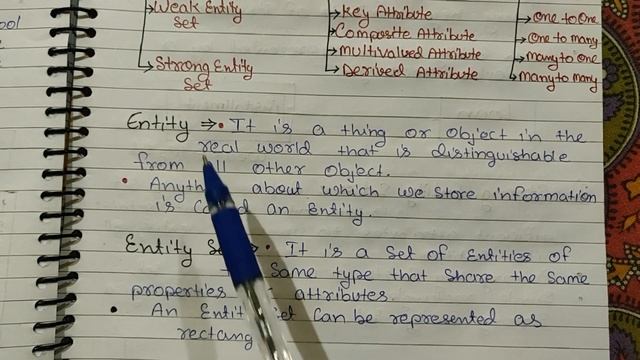 ool
→Weak Entity
Set
→Strong Entity
Set
→Key Attribute
→Composite Attribute
→Multivalued Attribute
→Derived Attribute
→One to One
→One to many
→many to one
→Many to many
Entity ⇒• It is a thing or object in the
real world that is distinguishable
from all other object.
• Anyth about which we store information
is called an Entity.
Entity Se • It is a Set of Entities of
Same type that Share the Same
properties attributes.
• An Entit et can be represented as
rectang